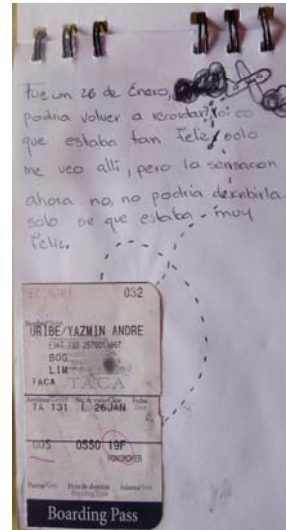 fue un 26 de Enero,
podria volver a recordar?
que estaba tan Feliz, solo
me veo alli, pero la sensacion
ahora no, no podria describirla
solo se que estaba - muy
Feliz.
032
URIBE/YAZMIN ANDRE
BOG
LIM
TACA TACA
TA 131 L 26JAN
005 0550 19F
Boarding Pass